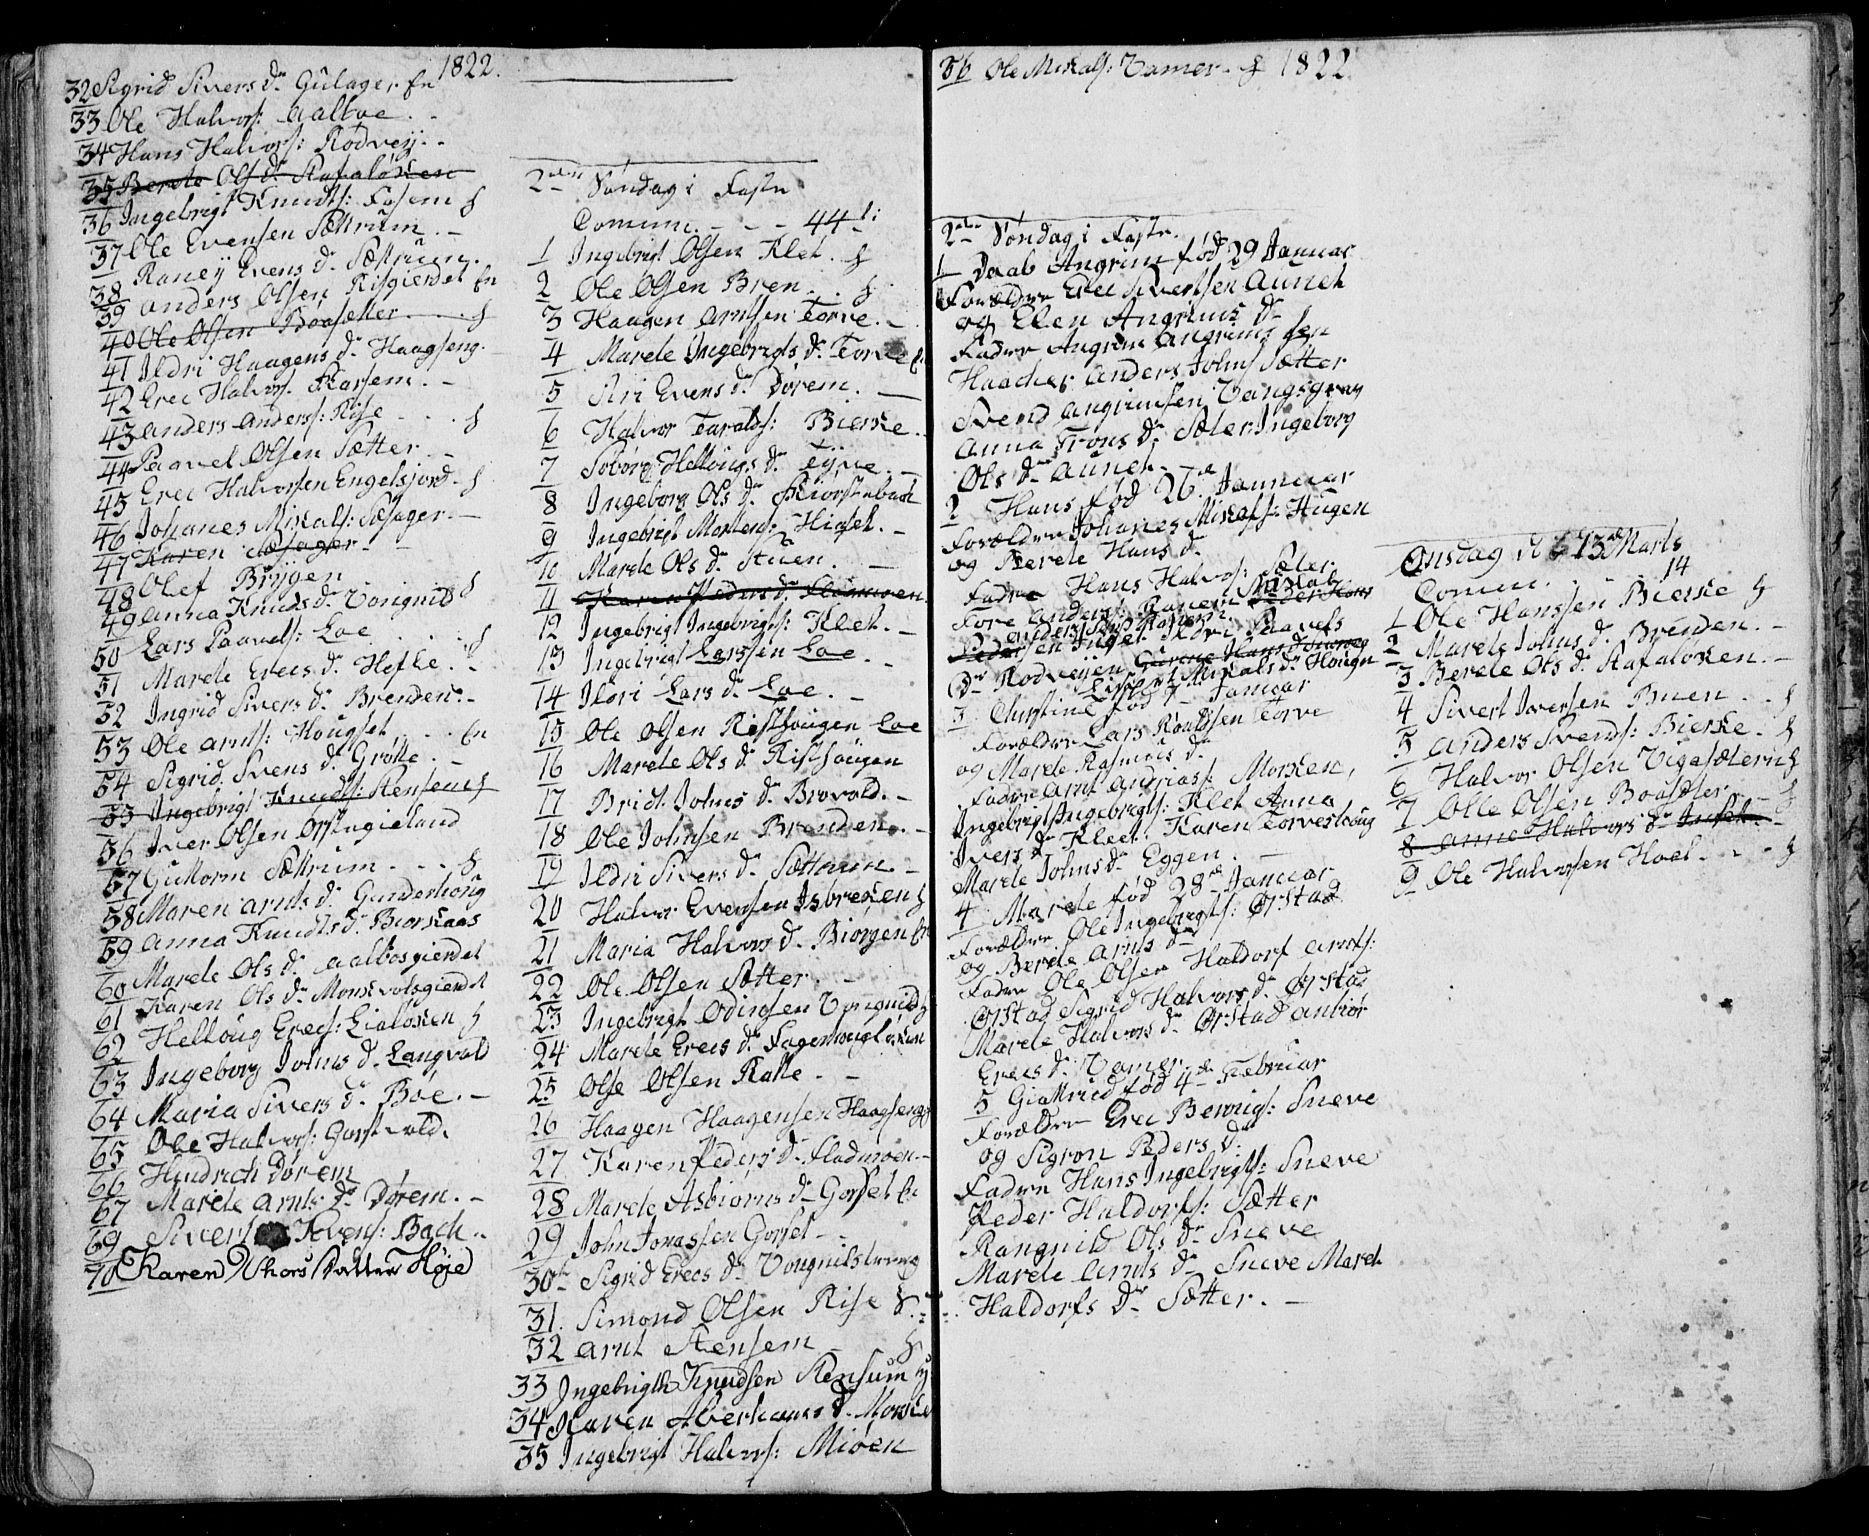 1822.
32 Sigrid Sivers d. Gulager fn
33 Ole Halvors: Aalboe
34 Hans Halvors: Rødvey
35 Berete Ols d. Rafaløken
36 Ingebrigt Knudts: Fosem
37 Ole Evensen Sættrum
38 Raney Evens d. Sættrum
39 Anders Olsen Risgierdet fn
40 Ole Olsen Boasetter
41 Ildri Haagens d. Haagseng
42 Erec Halvors: Karsem
43 Anders Anders: Rise
44 Paavel Olsen Sætter
45 Erec Halvorsen Engelsjord
46 Johanes Mikals: Sæsager
47 Karen Sæsager
48 Olef Brygen
49 Anna Knuds d. Vongnild
50 Lars Paavels: Loe
51 Marele Erecs d. Hefte
52 Ingrid Sivers d. Brenden
53 Ole Arnts: Hougset fn
54 Sigrid Svens d. Grøtte
55 Ingebrigt Knudts: Rensem
56 Iver Olsen
57 Guttorm Sættrum
58 Maren Arnts d. Gunderhoug
59 Anna Knudts d. Biørkaas
60 Marele Ols d. Aalbosgierdet
61 Karen Ols d.
62 Helloug Erecs: Lialøken
63 Ingeborg Johns d. Langvold
64 Maria Sivers d. Böe
65 Ole Halvors: Gorsetvold
66 Hendrich Dörem
67 Marele Arnts d. Dörem
69 Sivert Ivers: Bach
70 Karen Thorsdatter Höje
2den Søndag i Faste
Comum. - - - 44
1 Ingebrigt Olsen Klet
2 Ole Olsen Bren
3 Haagen Arntsen Torve
4 Marele Ingebrigts d. Torve
5 Siri Evens d. Dörem
6 Halvor Taralds: Bierke
7 Soborg Hellougs d. Tyve
8 Ingeborg Ols d.
9 Ingebrigt Mortens: Hiaset
10 Marele Ols d. Stuen
11 Karen Peders d. Fladmoen
12 Ingebrigt Ingebrigts: Klet
13 Ingebrigt Larssen Loe
14 Ildri Lars d. Loe
15 Ole Olsen Risthougen Loe
16 Marele Ols d. Risthougen
17 Bridt Johns d. Brovold
18 Ole Johnsen Brenden
19 Ildri Sivers d. Sættrum
20 Halvor Evensen Isbreken
21 Maria Halvors d. Biørgen fn
22 Ole Olsen Sætter
23 Ingebrigt Odinsen Vongnild
24 Marele Erecs d. Fagerhougløkken
25 Olse Olsen Ratte
26 Haagen Haagensen Haagseng
27 Karen Peders d. Fladmoen
28 Marele Asbiorns d. Gorset fn
29 John Jonassen Gorset
30 Sigrid Erecs d.
31. Simond Olsen Rise
32 Arnt Stensem
33 Ingebrigth Knudsen Rensum
34 Karen Aberhams d.
35 Ingebrigt Halvors: Mioen
36 Ole Mikals: Vamer. 1822
2den Søndag i Faste.
1 Daab Angrim fød 29 Januar
Forældre Erec Sivertsen Aunet
og Elen Angrims d.
Faddre Angrim Angrims sen
Haacker Anders Johns Sætter
Svend Angrimsen Vangsgrav
Anna Trons d. Sæler Ingeborg
Ols d. Aunet
2 Hans fød 26 Januar
Forældre Johanes Mikals: Hugen
og Berete Hans d.
Faddre Hans Halvors: Sæler
Tore Anders: Ranem
Anders
Ildri Paavels
d. Rodveyen
Mikals d. Hougn
3 Christine fød Januar
Forældre Lars Roaldsen Torve
og Marele Rasmus d.
Faddre Arnt Andrias: Morken,
Ingebrigt Ingebrigts: Klet Anna
Ivers d. Kleet Karen Torveshoug
Marele Johns d. Eggen
4 Marele fød 28 Januar
Forældre Ole Ingebrigts: Ørstad
og Berele Arnts d.
Faddre Ole Olsen Haldorf Arnts:
Ørstad Sigrid Halvors d. Ørstad
Marele Halvors d. Ørstad Anbior
Erecs d. Vamer
5 Giattrud fød 4 Februar
Forældre Erec Benrigs: Sneve
og Sigron Peders d.
Faddre Hans Ingebrigts: Sneve
Peder Haldorfs: Sætter
Rangnild Ols d. Sneve
Marele Arnts d. Sneve Marele
Haldorfs d. Sætter.
Onsdag d. 13 Marts
Comum. 14
1 Ole Hanssen Bierke
2 Marele Johns d. Brenden
3 Berele Ols d. Rafaløken
4 Sivert Iversen Buen
5 Anders Svends: Bierke
6 Halvor Olsen Vigesætern
7 Olle Olsen Boasetter
8 Anne Halvors d.
9 Ole Halvorsen Hoel